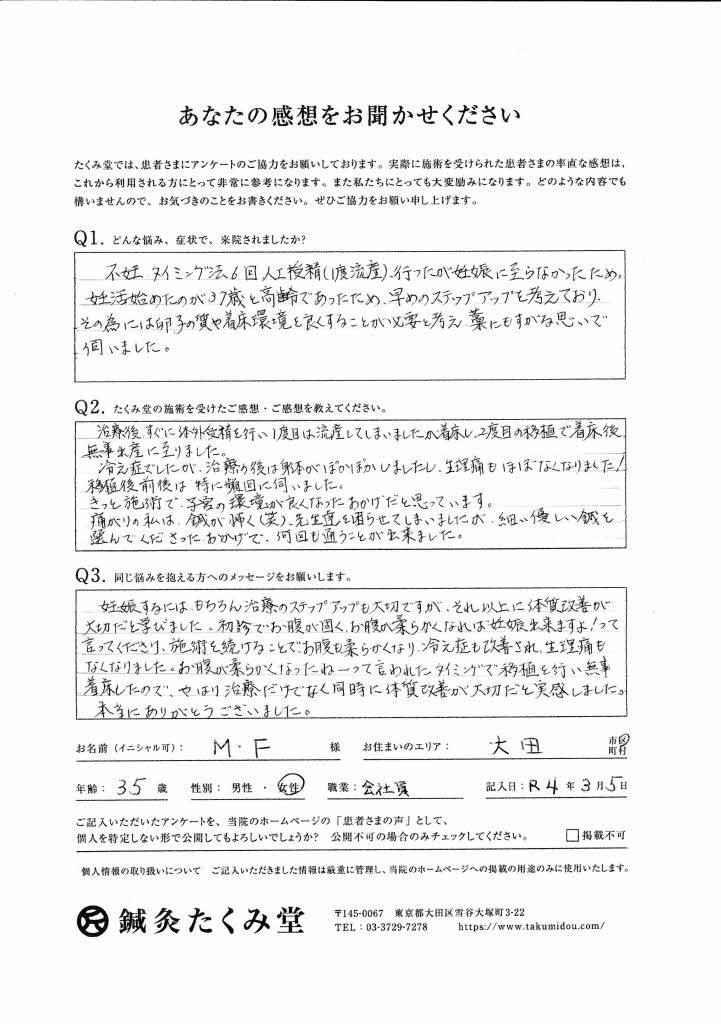 あなたの感想をお聞かせください
たくみ堂では、患者さまにアンケートのご協力をお願いしております。実際に施術を受けられた患者さまの率直な感想は、
これから利用される方にとって非常に参考になります。また私たちにとっても大変励みになります。どのような内容でも
構いませんので、お気づきのことをお書きください。ぜひご協力をお願い申し上げます。
Q1. どんな悩み、症状で、来院されましたか?
不妊 タイミング法6回 人工授精(1度流産)、行ったが妊娠に至らなかったため。
妊活始めたのが37歳と高齢であったため、早めのステップアップを考えており、
その為には卵子の質や着床環境を良くすることが必要と考え 藁にもすがる思いで
伺いました。
Q2. たくみ堂の施術を受けたご感想・ご感想を教えてください。
治療後、すぐに体外受精を行い1度目は流産してしまいましたが着床し、2度目の移植で着床後、
無事出産に至りました。
冷え症でしたが、治療の後は身体がぽかぽかしましたし、生理痛もほぼなくなりました!
移植後前後は特に頻回に伺いました。
きっと施術で、子宮の環境が良くなったおかげだと思っています。
痛がりの私は、鍼が怖く(笑)、先生達を困らせてしまいましたが、細い優しい鍼を
選んでくださったおかげで、何回も通うことが出来ました。
Q3. 同じ悩みを抱える方へのメッセージをお願いします。
妊娠するには、もちろん治療のステップアップも大切ですが、それ以上に体質改善が
大切だと学びました。初診でお腹が固く、お腹が柔らかくなれば妊娠出来ますよ!って
言ってくださり、施術を続けることでお腹も柔らかくなり、冷え症も改善され、生理痛も
なくなりました。お腹が柔らかくなったねーって言われたタイミングで移植を行い無事
着床したので、やはり治療だけでなく同時に体質改善が大切だと実感しました。
本当にありがとうございました。
お名前(イニシャル可): M・F 様 お住まいのエリア: 大田 市区町村
年齢: 35 歳 性別: 男性・女性 職業: 会社員 記入日: R4年3月5日
ご記入いただいたアンケートを、当院のホームページの「患者さまの声」として、
個人を特定しない形で公開してもよろしいでしょうか? 公開不可の場合のみチェックしてください。 □掲載不可
個人情報の取り扱いについて ご記入いただきました情報は厳重に管理し、当院のホームページへの掲載の用途のみに使用いたします。
鍼灸たくみ堂
〒145-0067 東京都大田区雪谷大塚町3-22
TEL:03-3729-7278 https://www.takumidou.com/